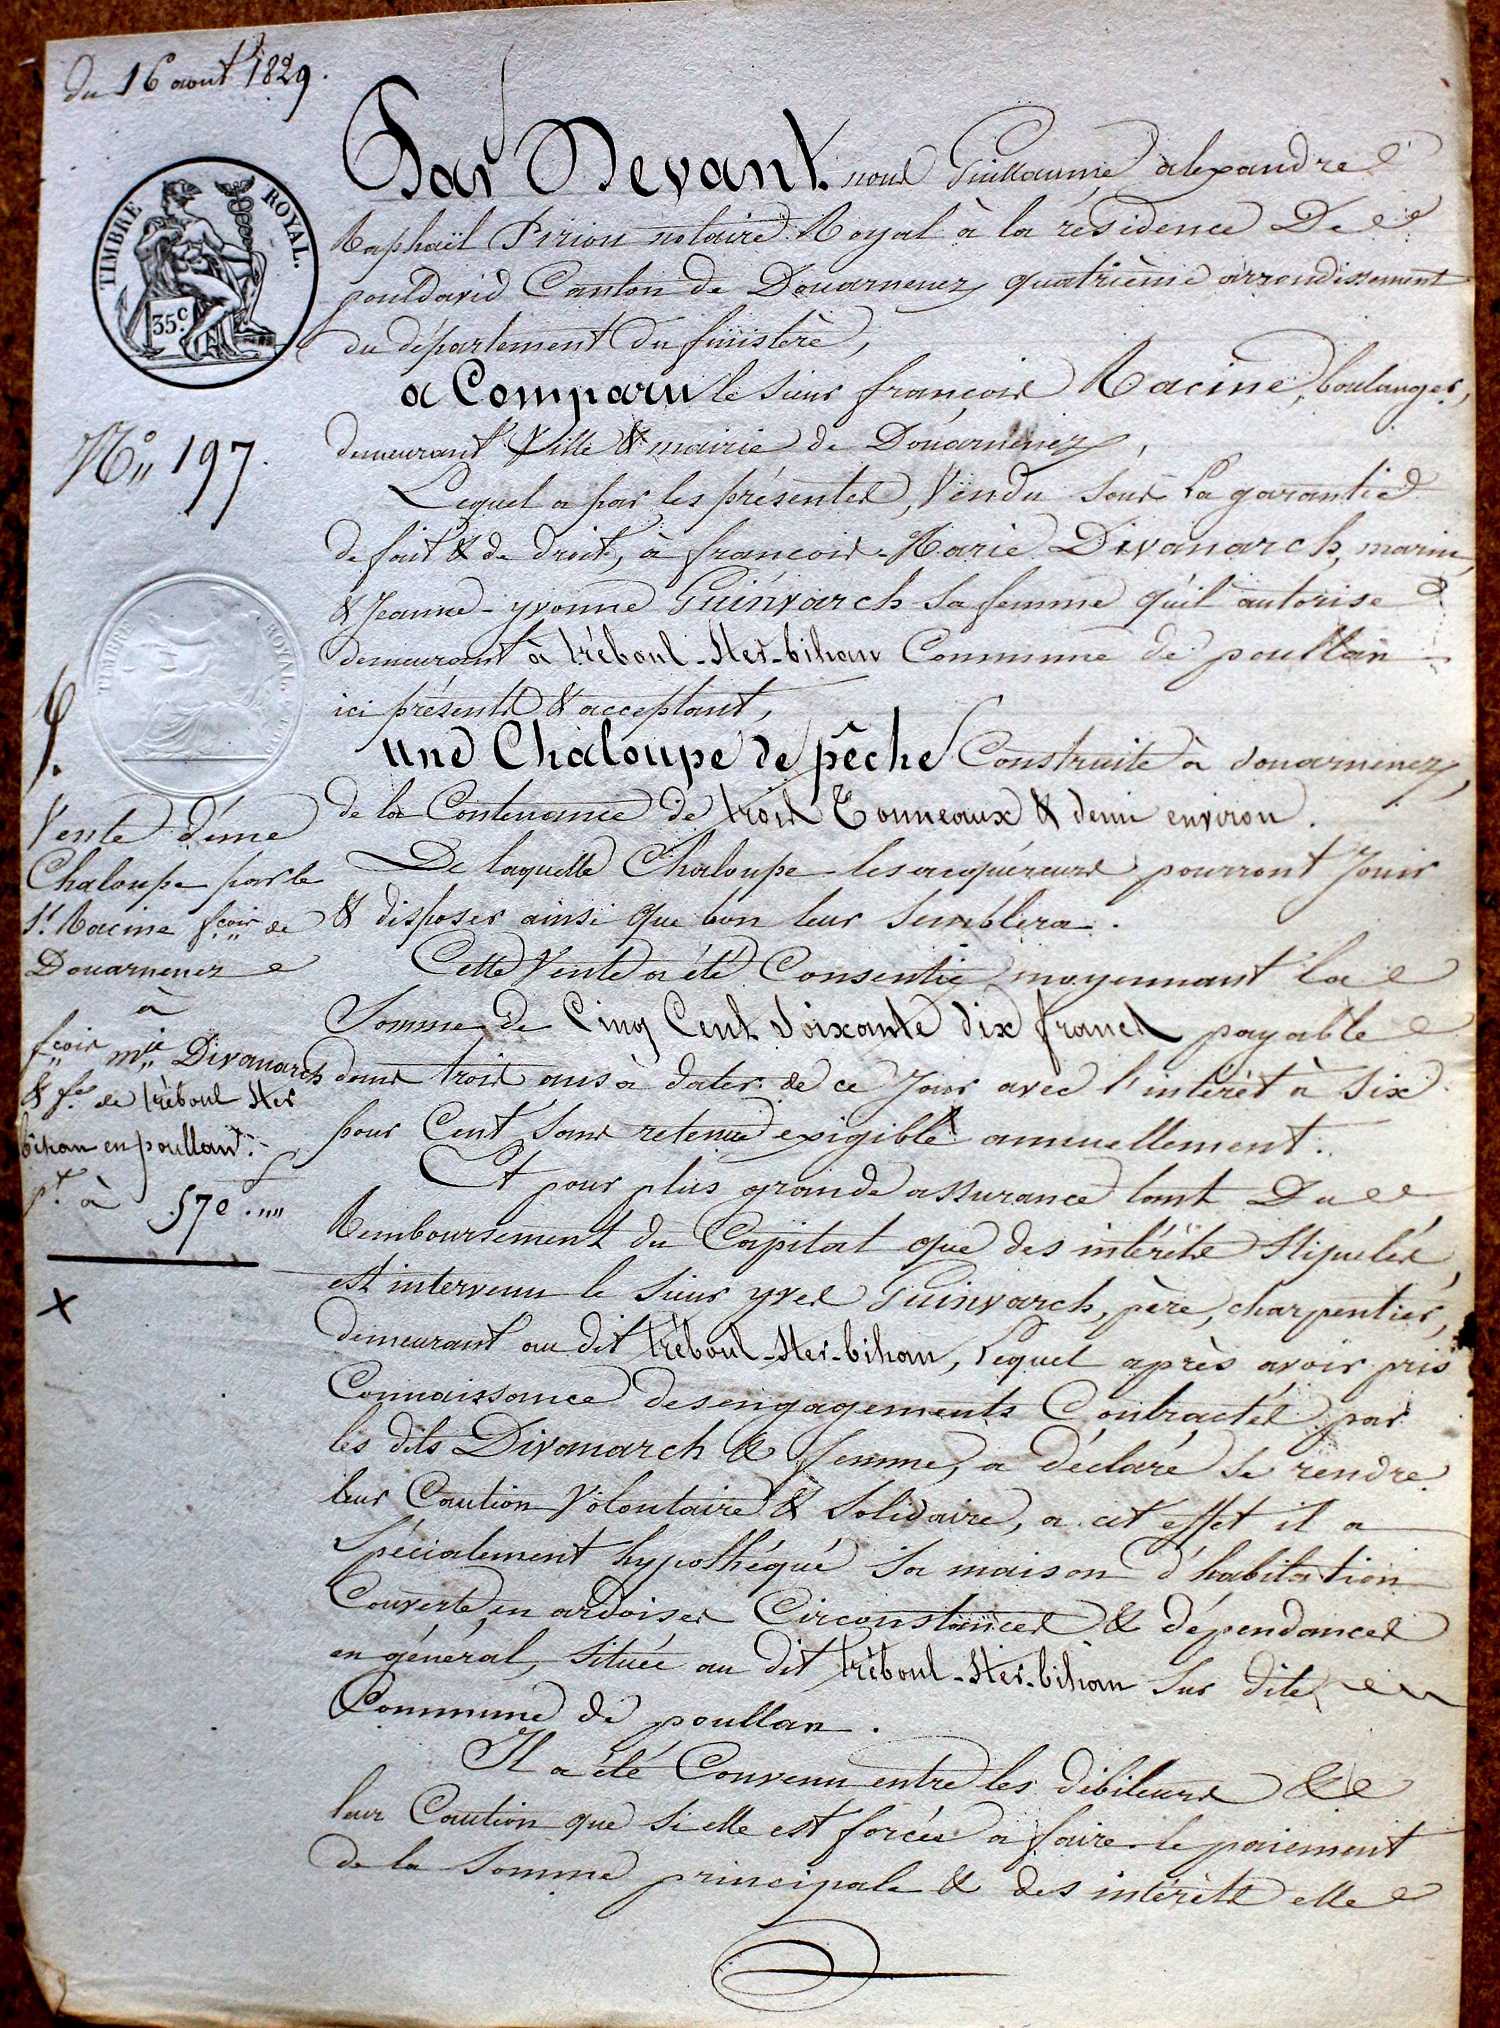 du 16 aout 1829.
TIMBRE ROYAL.
35.c
No,, 197.
TIMBRE ROYAL
Vente d'une
Chaloupe par le
Sr. Racine fçois de
Douarnenez
à
fçois mie Divanarch
& fe. de tréboul Ster
bihan en poullan.
pt. à 570.,,,,
Par Devant nous Guillaume alexandre
Raphaël Pirion notaire Royal à la résidence De
pouldavid Canton de Douarnenez quatrième arrondissement
du département du finistère,
a Comparu le sieur françois Racine, boulanger,
demeurant Ville & mairie de Douarnenez,
Lequel a par les présentes, Vendu sous la garantie
de fait & de droit, à françois-Marie Divanarch, marin,
& Jeanne-yvonne Guinvarch sa femme qu'il autorise
demeurant à tréboul-Ster-bihan Commune de poullan
ici présents & acceptant,
une Chaloupe de pêche Construite à douarnenez,
de la Contenance de trois Tonneaux & demi environ.
De laquelle Chaloupe les acquéreurs pourront Jouir
& disposer ainsi que bon leur semblera.
Cette Vente a été Consentie moyennant la
Somme de Cinq Cent soixante dix francs payable
dans trois ans à dater de ce Jour avec l'intérêt à six
pour Cent sans retenue exigible annuellement.
Et pour plus grande assurance tant Du
Remboursement du Capital que des intérêts Stipulés,
est intervenu le sieur yves Guinvarch, père, charpentier,
demeurant au dit tréboul-Ster-bihan, Lequel après avoir pris
Connaissance des engagements Contractés par
les dits Divanarch & femme, a déclaré se rendre
leur Caution Volontaire & Solidaire, a cet effet il a
Spécialement hypothéqué sa maison d'habitation
Couverte en ardoises Circonstances & dépendances
en général, située au dit tréboul-Ster-bihan sus dite en
Commune de poullan.
Il a été Convenu entre les débiteurs &
leur Caution que si elle est forcée a faire le paiement
de la somme principale & des intérêts elle